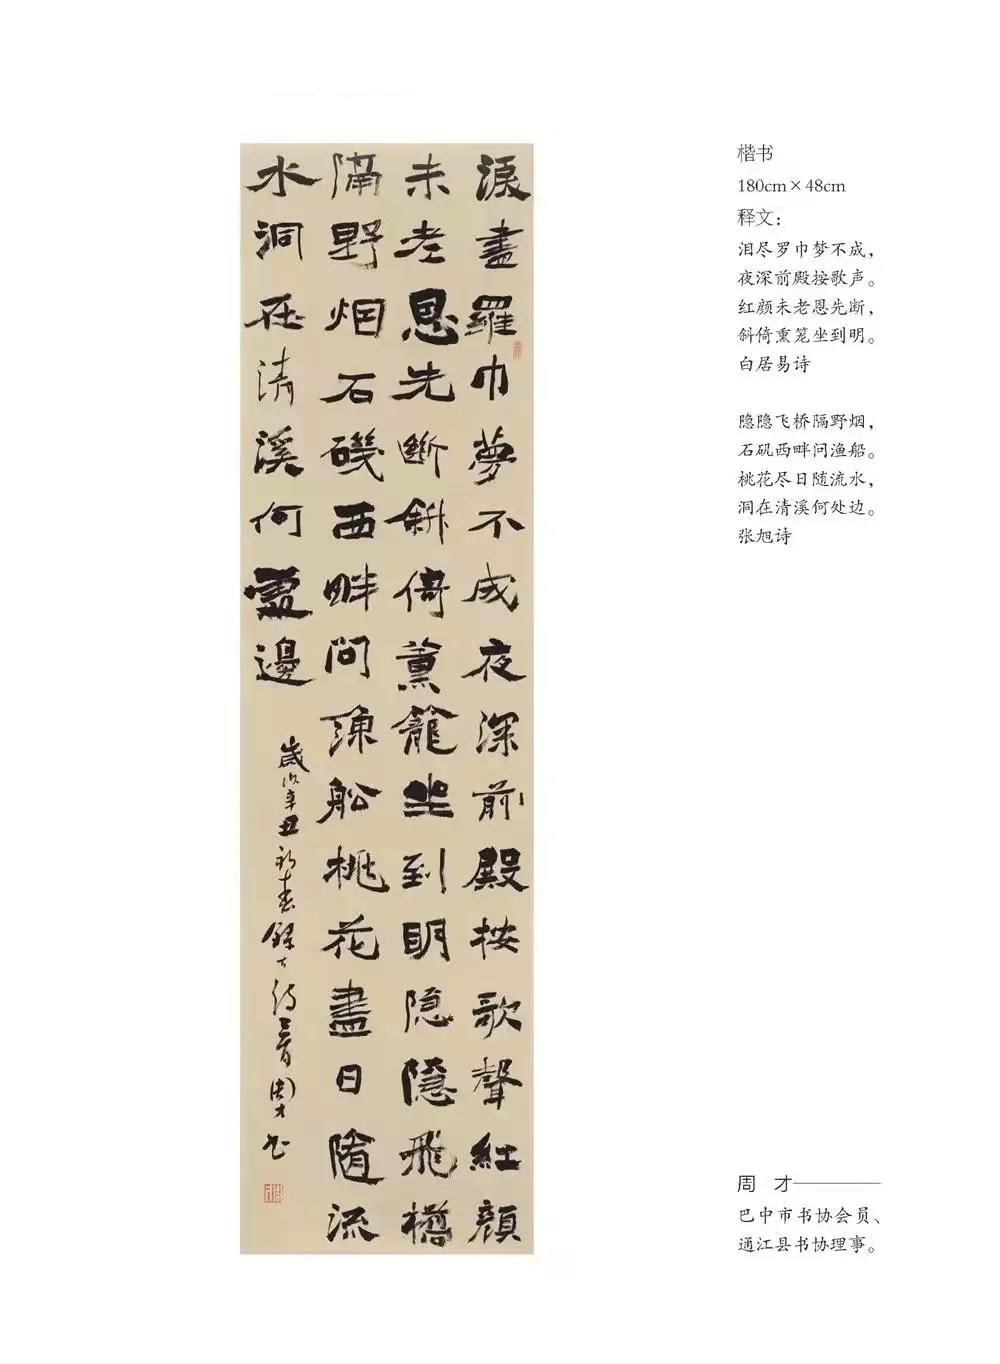 淚盡羅巾夢不成夜深前殿按歌聲紅顏
未老恩先斷斜倚薰籠坐到明隐隱飛橋
隔野烟石磯西畔問漁船桃花盡日隨流
水洞在清溪何處邊
歲次辛丑初春錄古詩二首周才書
楷书
180cm×48cm
释文：
泪尽罗巾梦不成，
夜深前殿按歌声。
红颜未老恩先断，
斜倚熏笼坐到明。
白居易诗
隐隐飞桥隔野烟，
石矶西畔问渔船。
桃花尽日随流水，
洞在清溪何处边。
张旭诗
周 才
巴中市书协会员、
通江县书协理事。